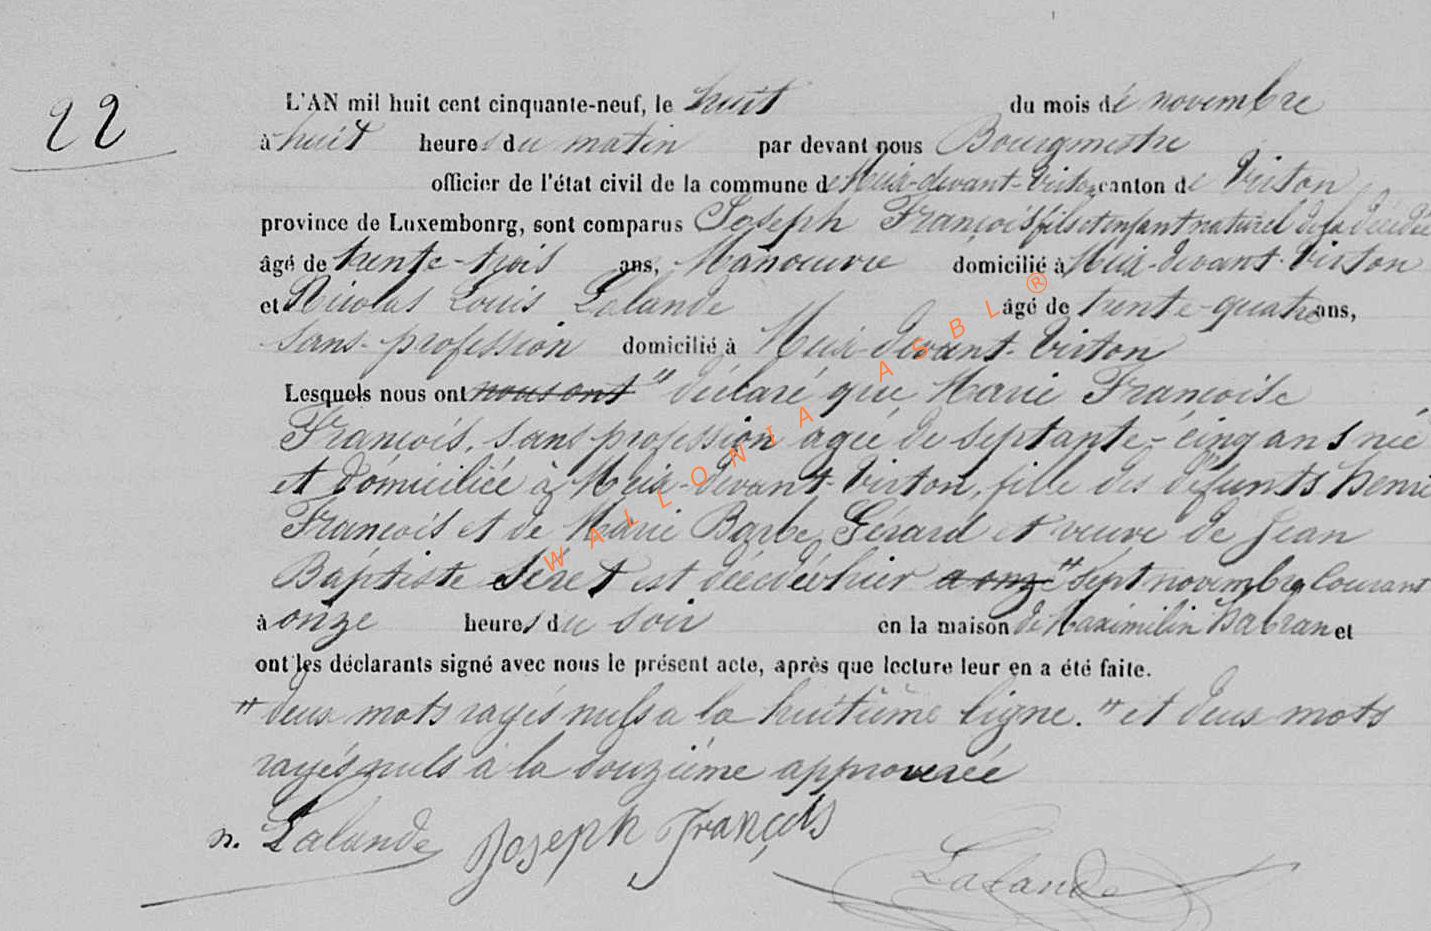 22
L'AN mil huit cent cinquante-neuf, le huit du mois de novembre
à huit heures du matin par devant nous Bourgmestre
officier de l'état civil de la commune de Meix-devant-Virton canton de Virton
province de Luxembonrg, sont comparus Joseph François fils et enfant naturel de la décédée
âgé de trente-trois ans, Manoeuvre domicilié à Meix-devant-Virton
et Nicolas Louis Lalande âgé de trente-quatre ans,
sans-profession domicilié à Meix-devant-Virton
Lesquels nous ont nous ont " déclaré que Marie Françoise
François, sans profession agée de septante-cinq ans née
et domiciliée à Meix-devant-Virton, fille des défunts Henri
François et de Marie Barbe Gérard et veuve de Jean
Baptiste Seret est décédée hier a onze " sept novembre courant
à onze heures du soir en la maison de Maximilin Habran et
ont les déclarants signé avec nous le présent acte, après que lecture leur en a été faite.
" deux mots rayés nuls a la huitième ligne. " et deux mots
rayés nuls à la douzième
n. Lalande Joseph François
Lalande
WALLONIA ASBL ®